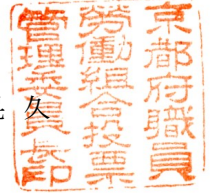 京都府職員
労働組合投票
管理委員長印
久